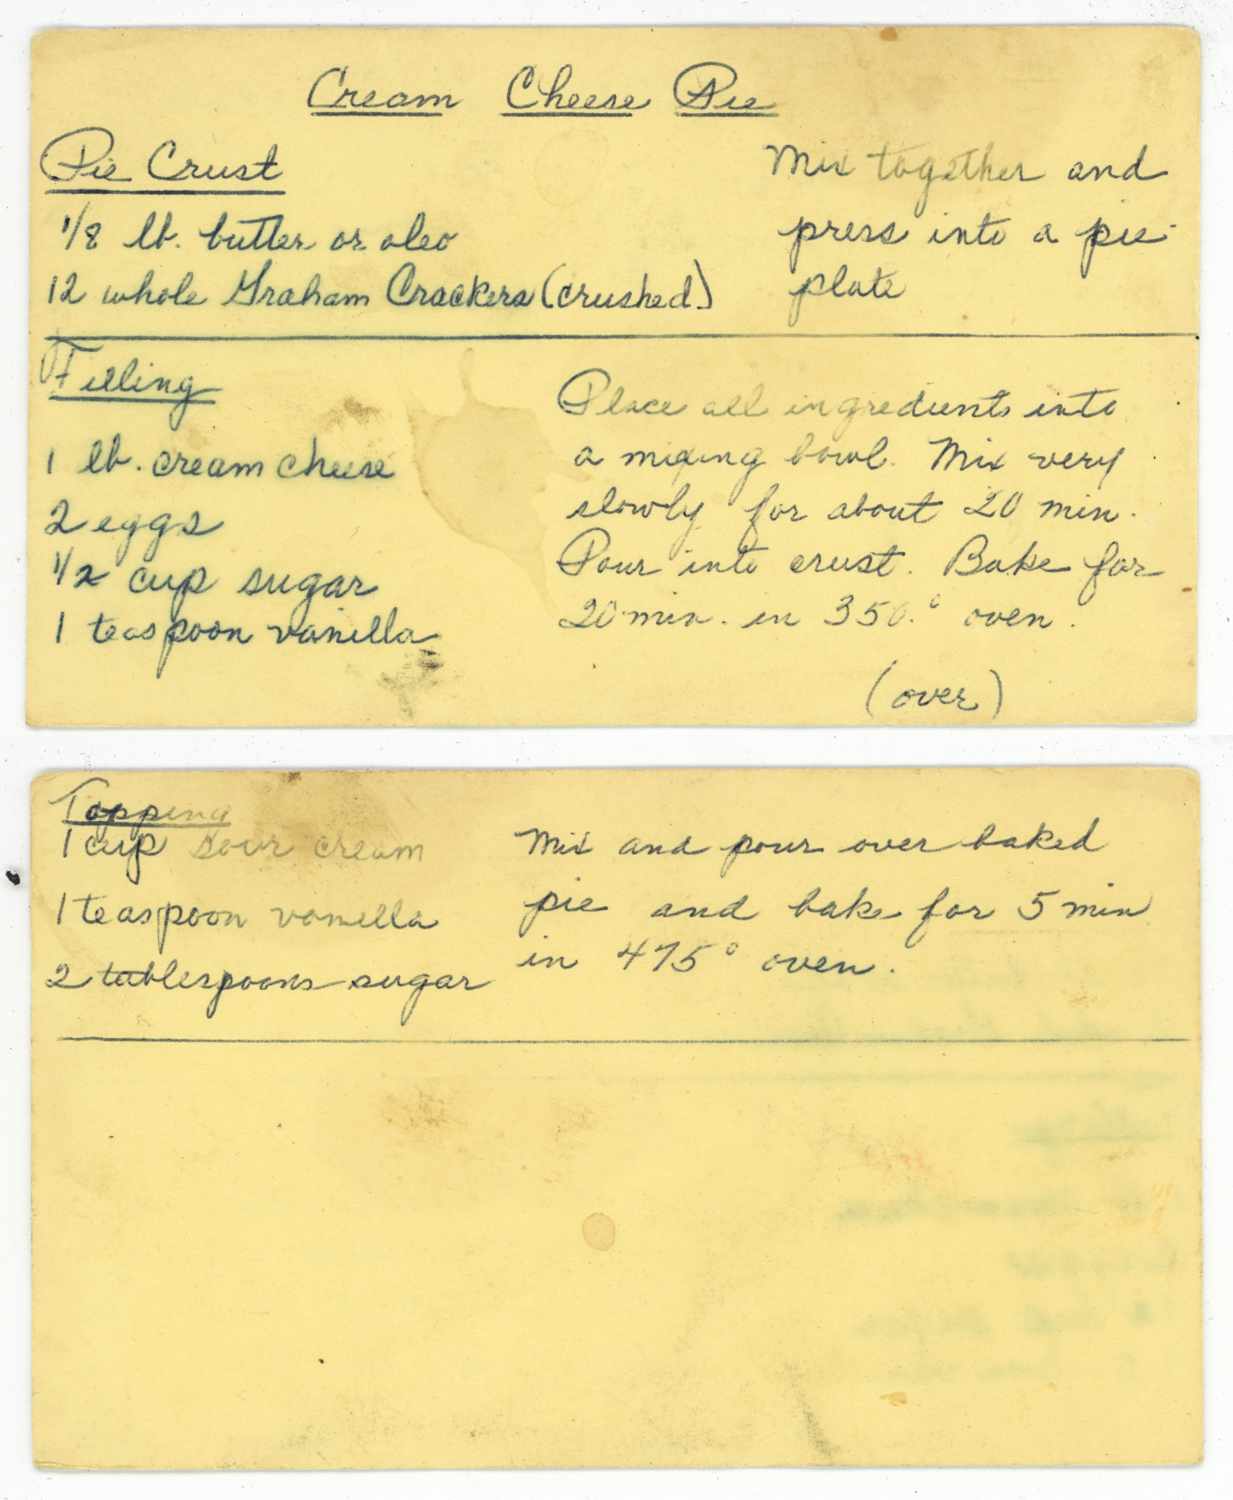 Cream Cheese Pie
Pie Crust
1/8 lb. butter or oleo
12 whole Graham Crackers (crushed)
Mix together and
press into a pie
plate
Filling
1 lb. cream cheese
2 eggs
1/2 cup sugar
1 teaspoon vanilla
Place all ingredients into
a mixing bowl. Mix very
slowly for about 20 min.
Pour into crust. Bake for
20 min. in 350° oven.
(over)
Topping
1 cup sour cream
1 teaspoon vanilla
2 tablespoons sugar
Mix and pour over baked
pie and bake for 5 min
in 475° oven.